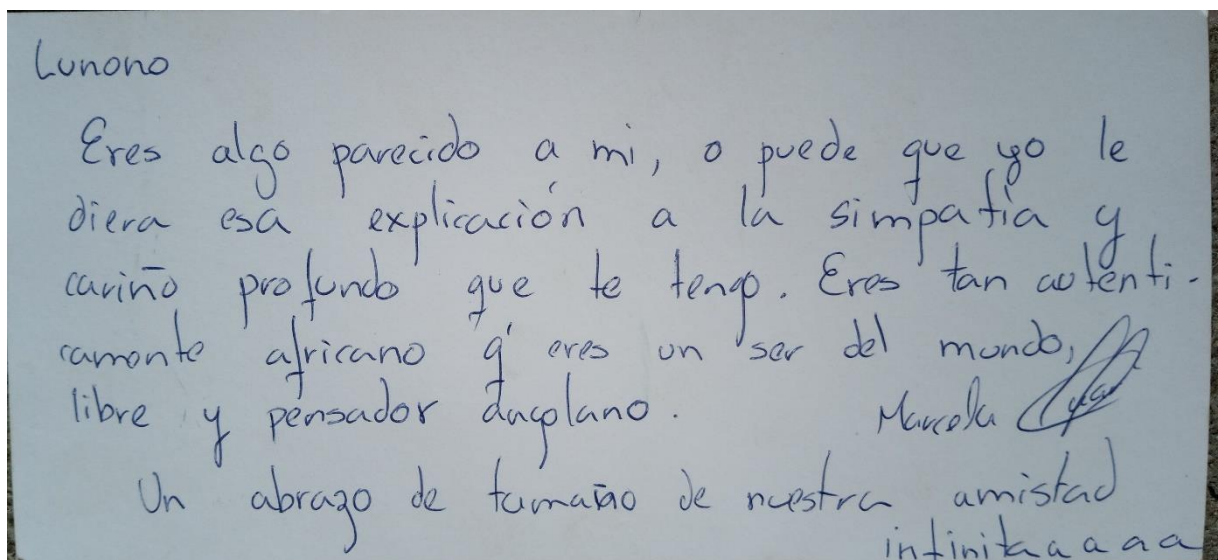 Lunono
Eres algo parecido a mi, o puede que yo le
diera esa explicación a la simpatía y
cariño profundo que te tengo. Eres tan autenti-
camente africano q' eres un ser del mundo,
libre y pensador
Marcela
Un abrazo de tamaño de nuestra amistad
infinita a a a a